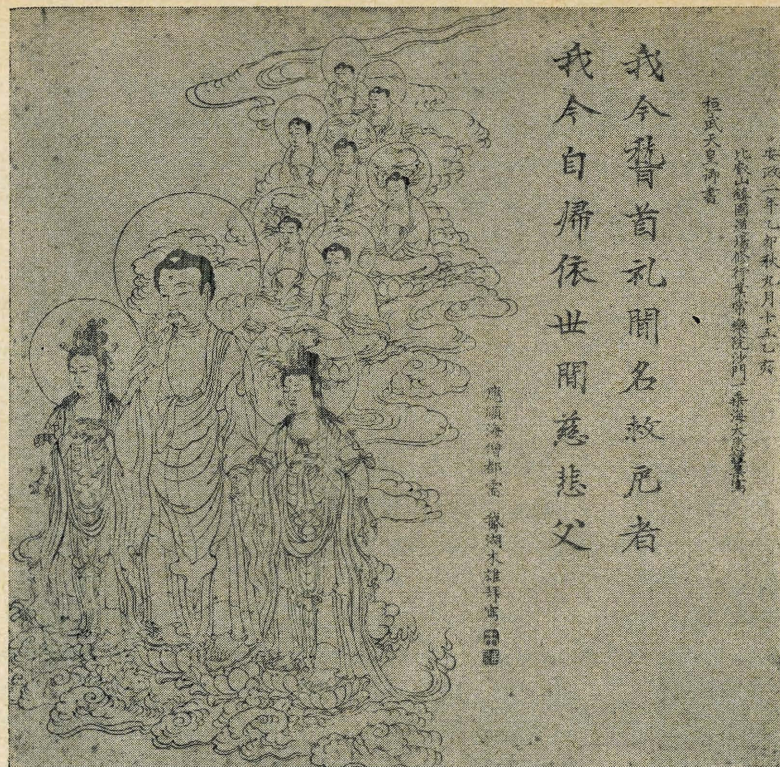 安政二年乙卯秋九月十五乙亥
比叡山鎮國道場修行業常樂院沙門一乗海大
桓武天皇御書
我今稽首礼聞名救厄者
我今自帰依世間慈悲父
應願海僧都需 鵞湖木雄拝寫